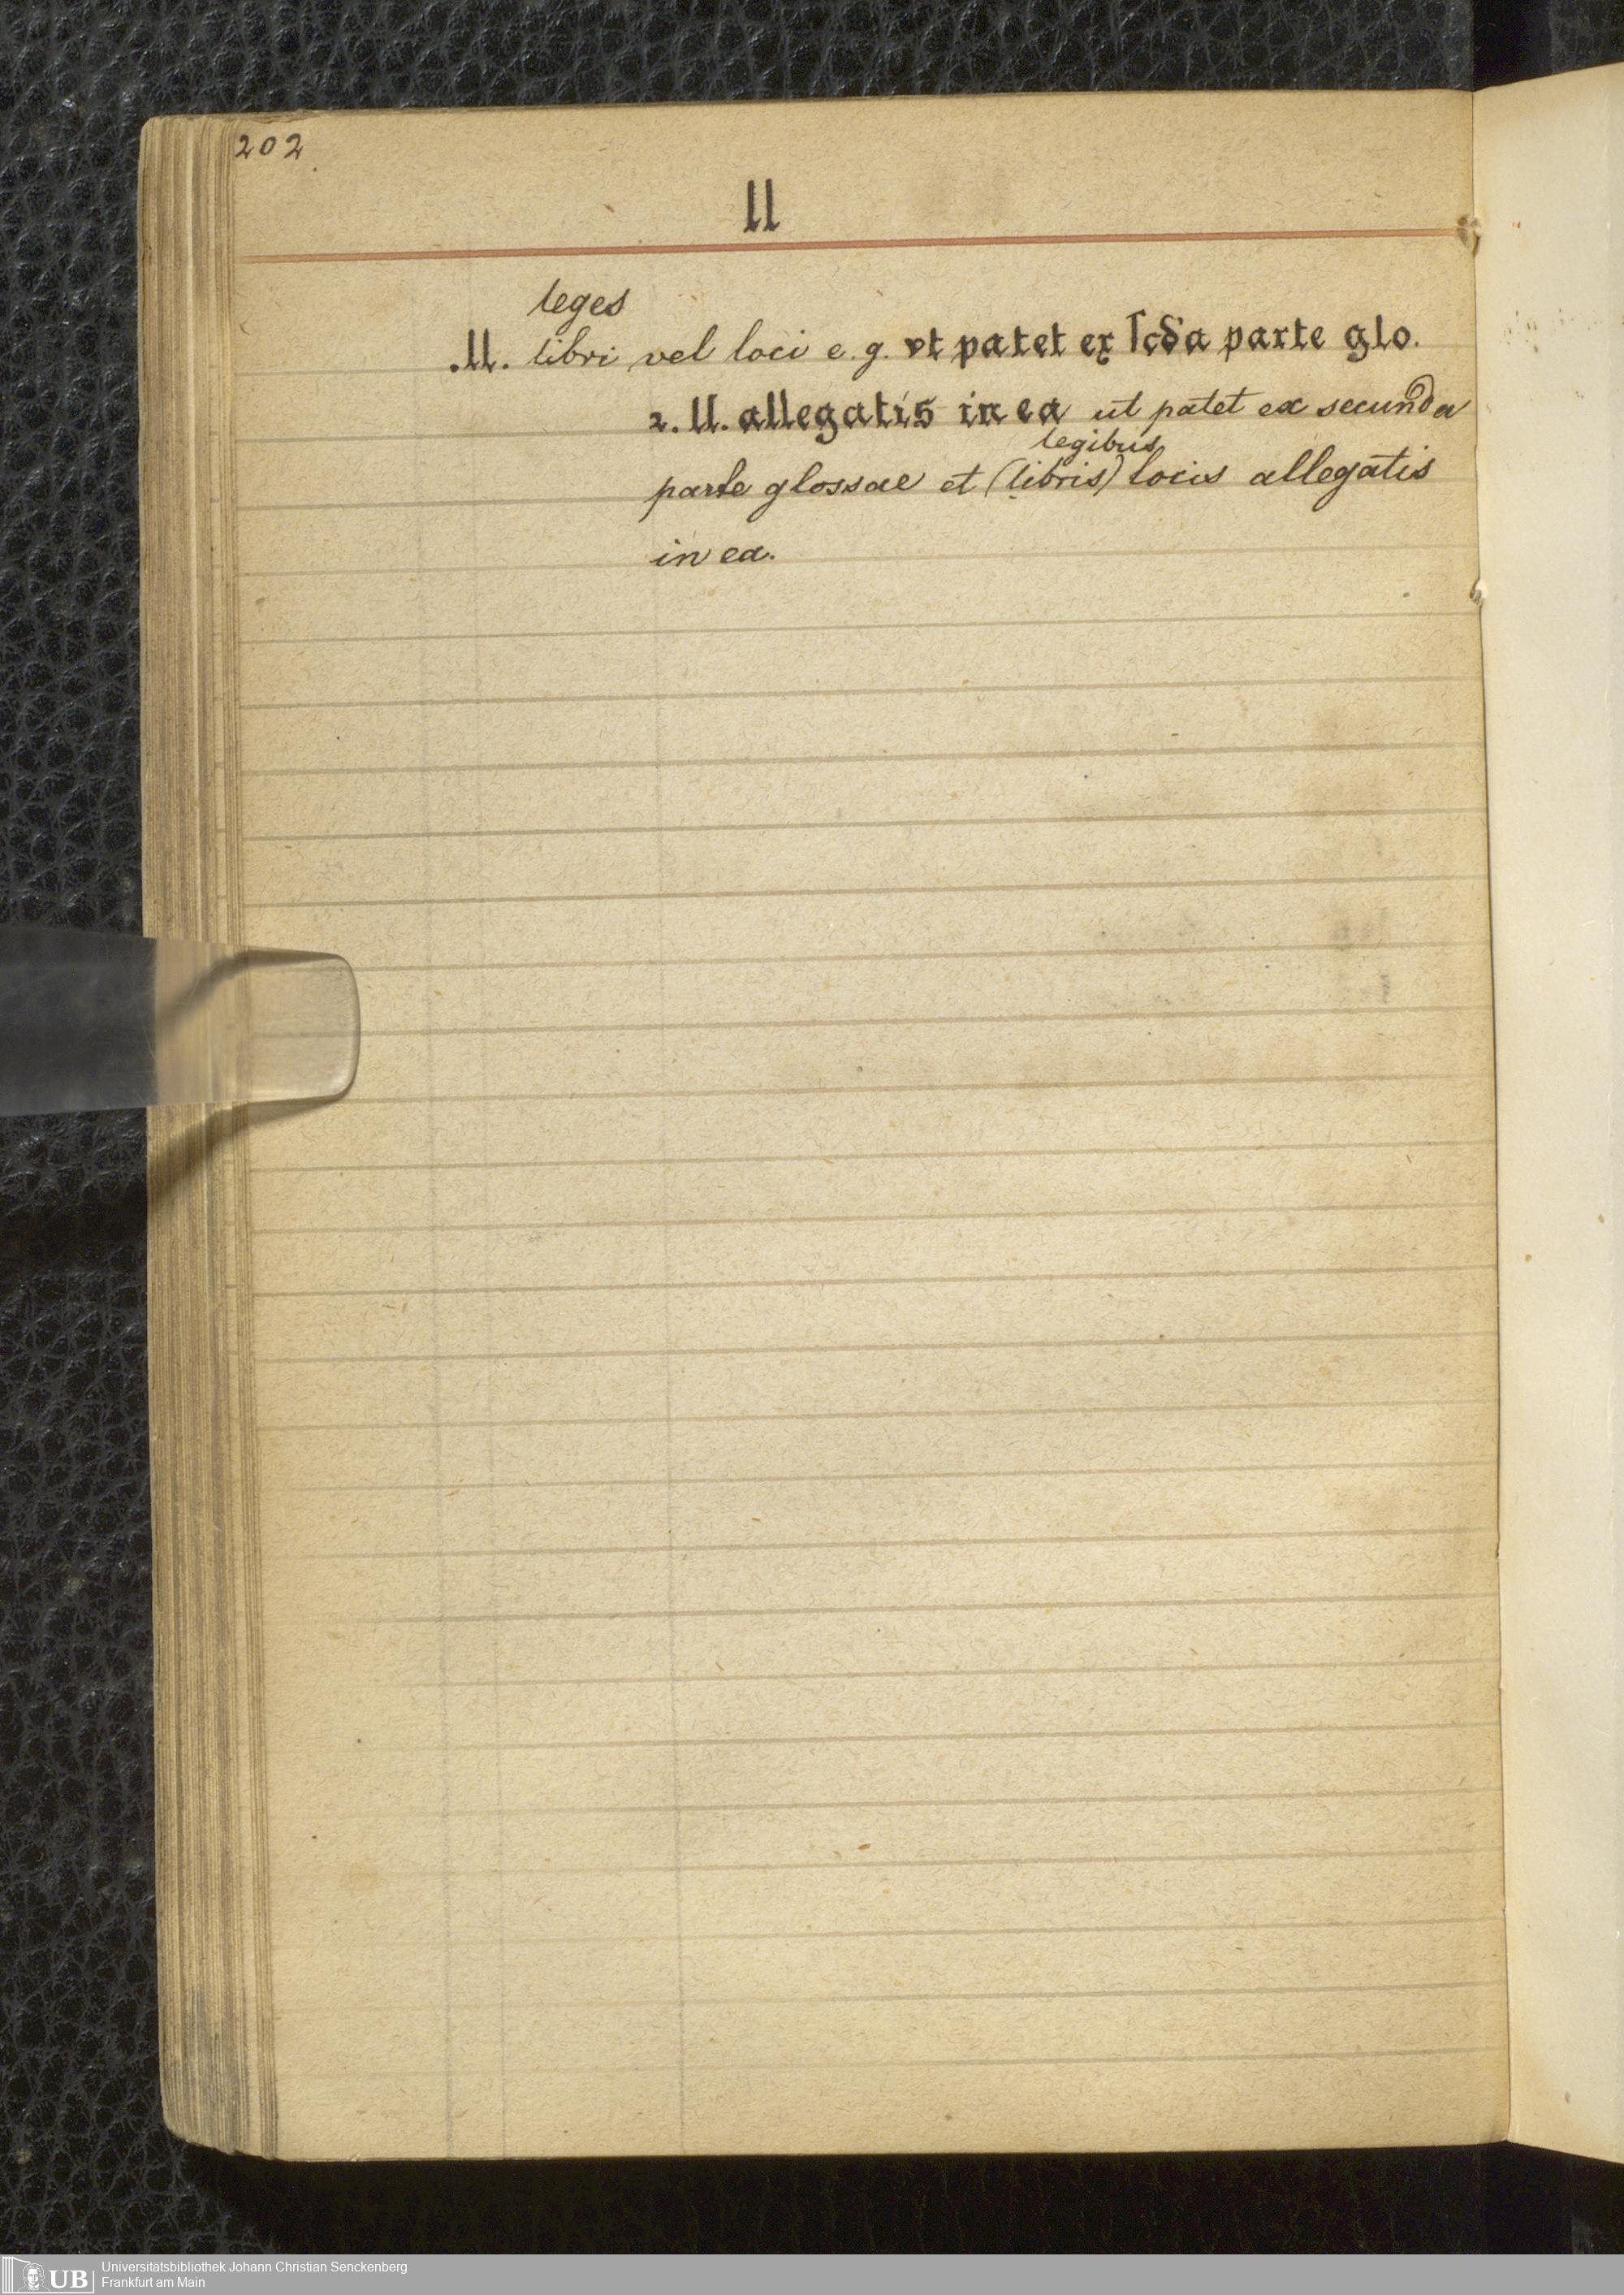 202
ll
leges
.ll. libri vel loci e. g. vt patet ex ſcda parte glo.
⁊. ll. allegatis in ea ut patet ex secunda
legibus
parte glossae et (libris) locis allegatis
in ea.
UB
Universitätsbibliothek Johann Christian Senckenberg
Frankfurt am Main